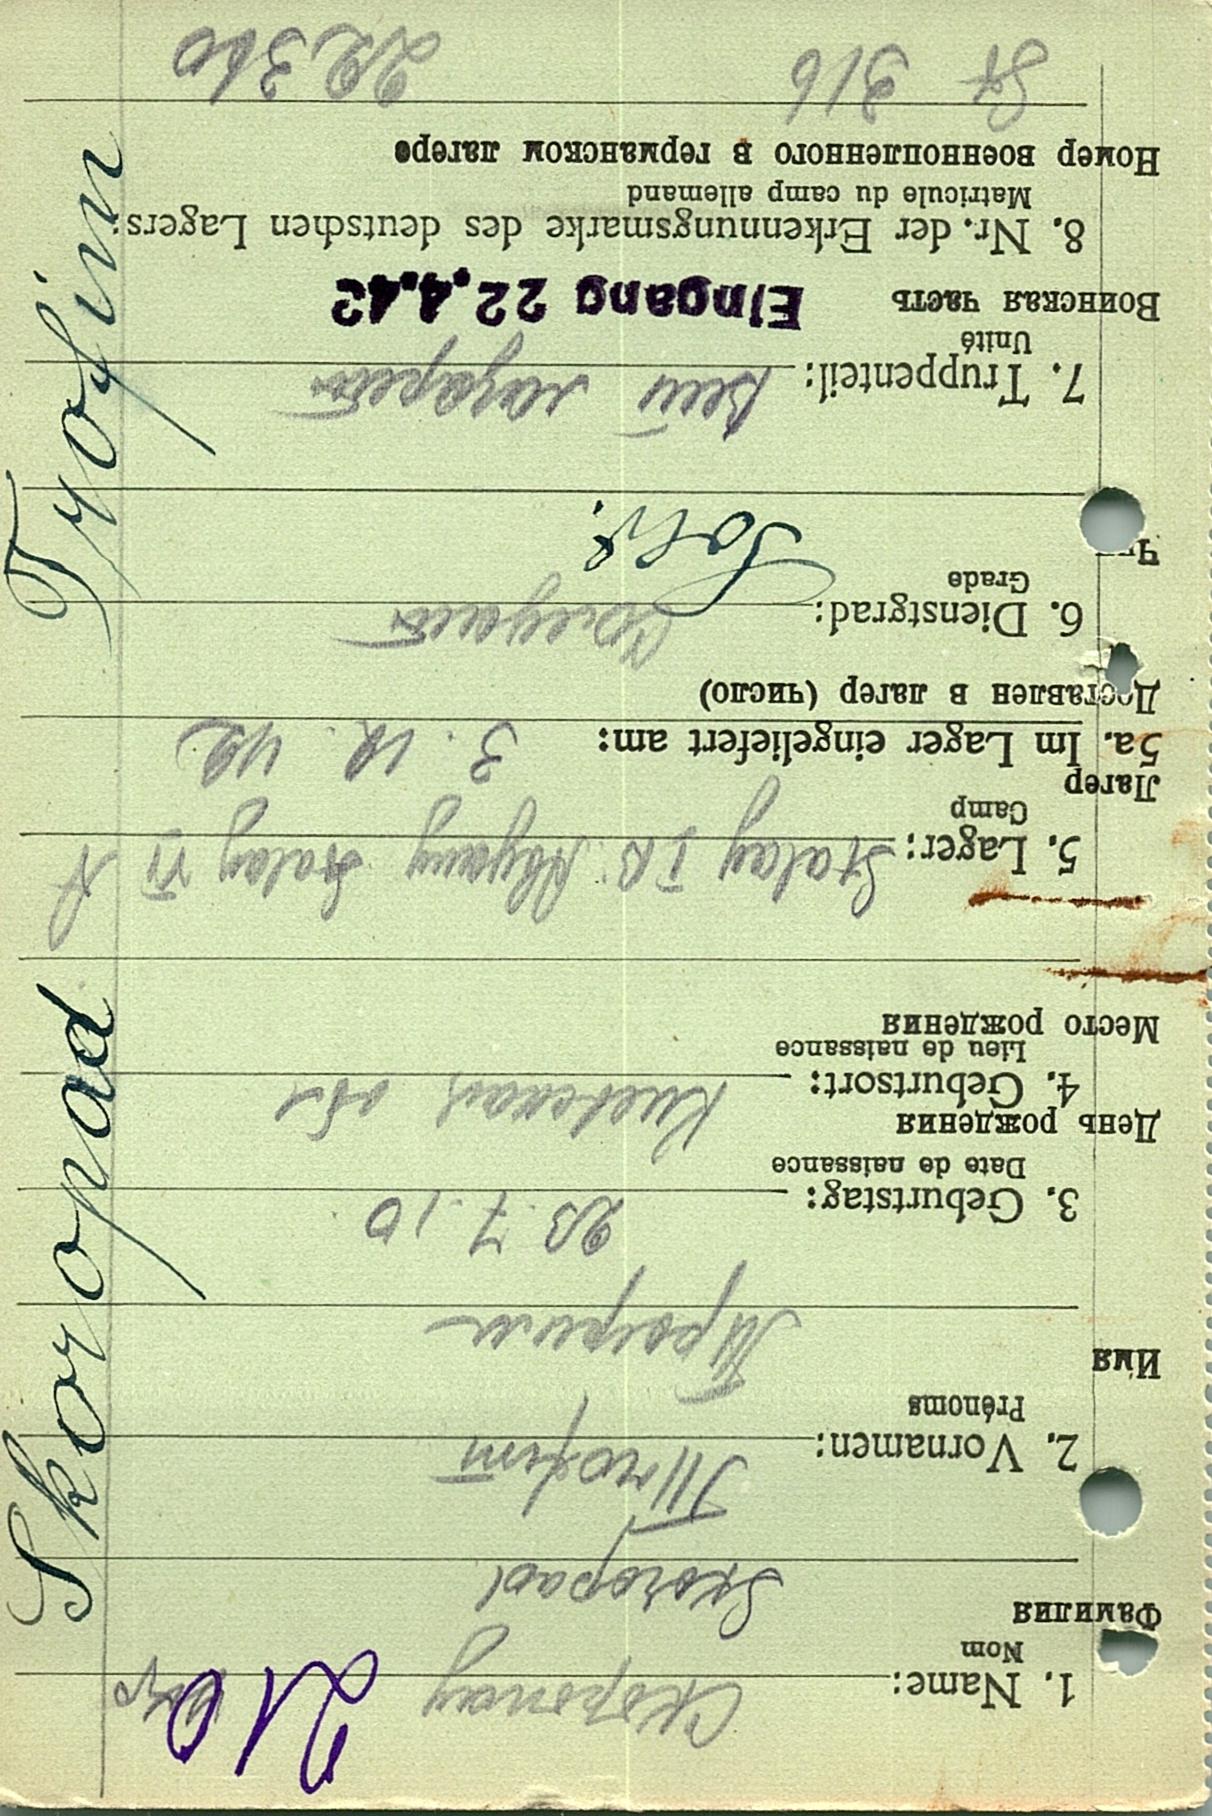 Skoropad Trofim
Ukr
210
1. Name: Скоропад
Nom
Фамилия
Skoropad
2. Vornamen: Trofim
Prénoms
Имя
Трофим
3. Geburtstag: 23.7.10
Date de naissance
День рождения
4. Geburtsort: Киевская обл
Lieu de naissance
Место рождения
5. Lager: Stalag I B. Abgang Stalag VI A
Camp
Лагер
5a. Im Lager eingeliefert am: 3. 12. 42
Доставлен в лагер (число)
6. Dienstgrad:
Grade
Sold.
7. Truppenteil:
Unité
Воинская часть Eingang 22.4.43
8. Nr. der Erkennungsmarke des deutschen Lagers:
Matricule du camp allemand
Номер военнопленного в германском лагере
St 316 22360